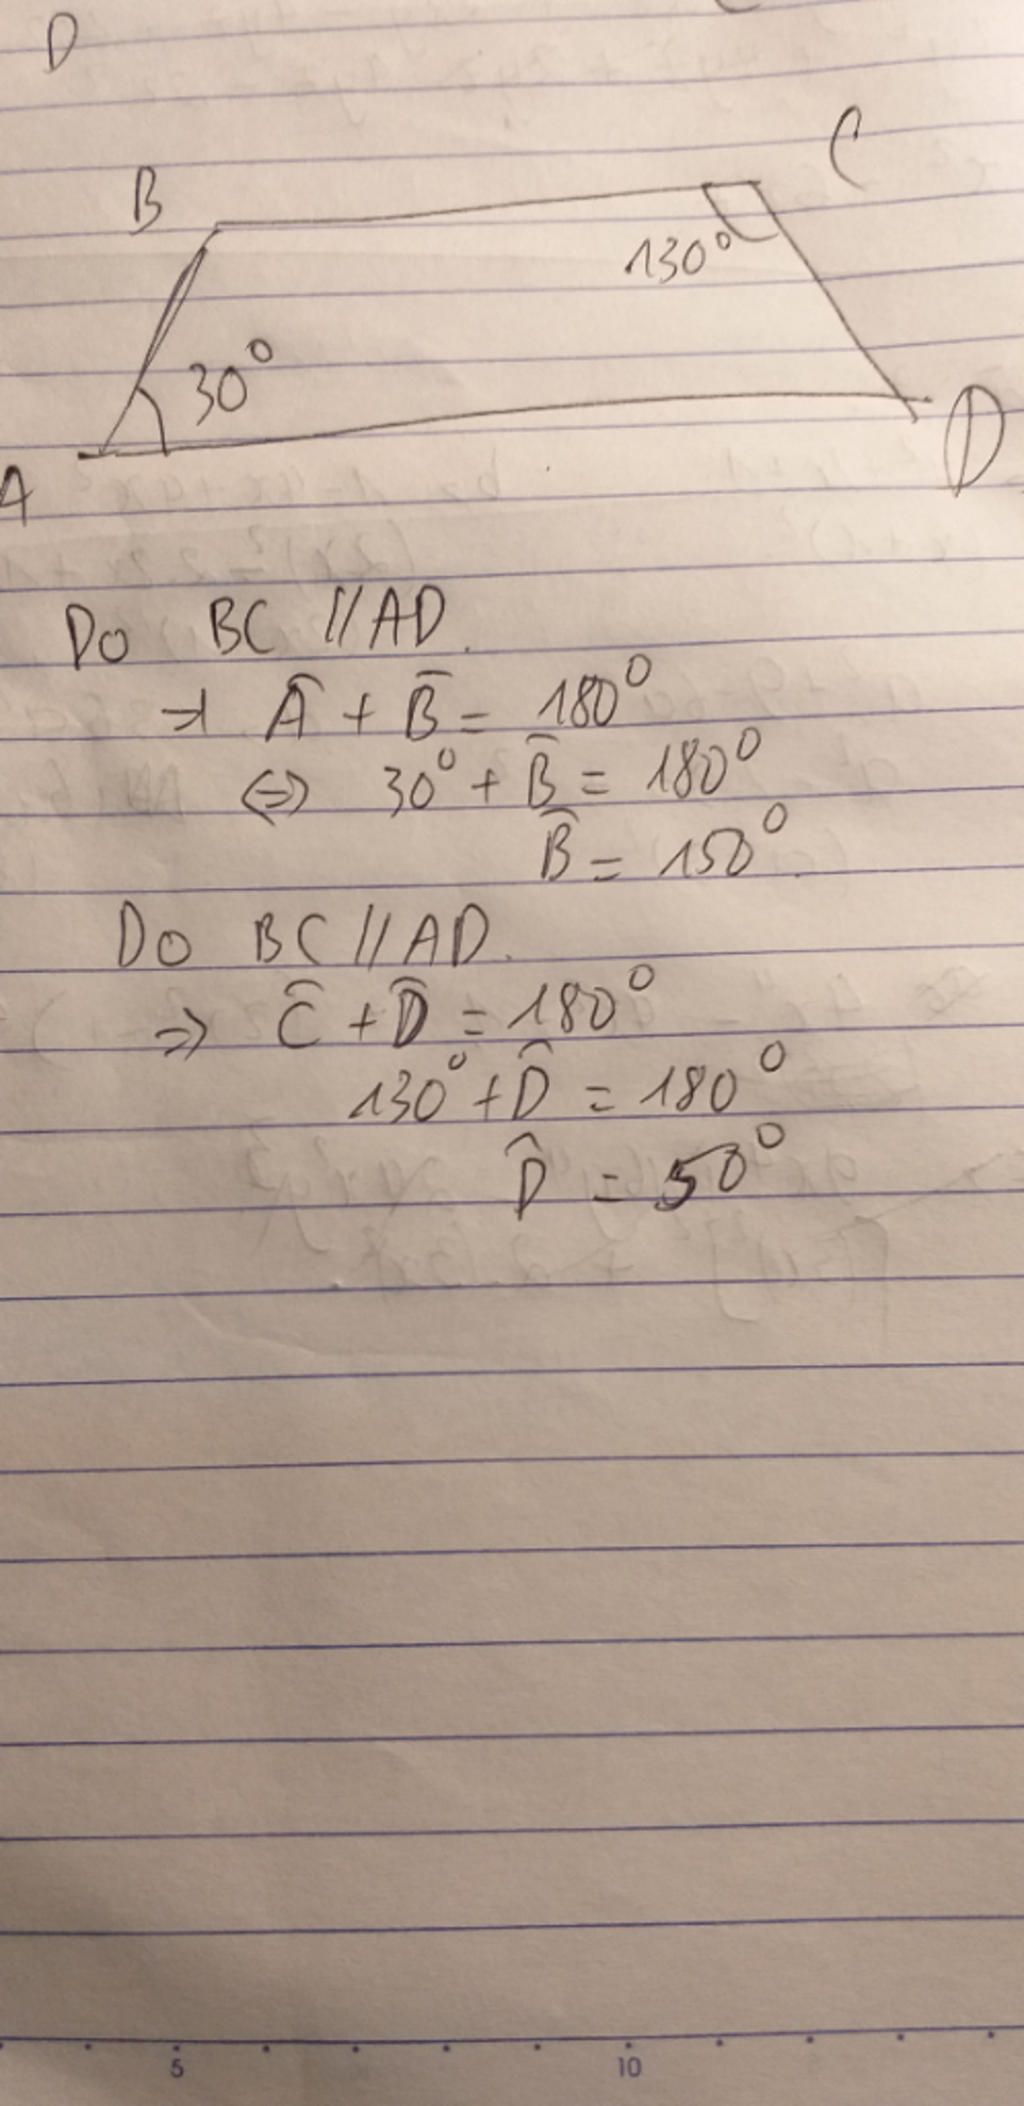 D
B
C
130°
30°
A
D
Do BC // AD.
⇒ Â + B̂ = 180°
⇔ 30° + B̂ = 180°
B̂ = 150°.
Do BC // AD.
⇒ Ĉ + D̂ = 180°
130° + D̂ = 180°
D̂ = 50°
5 10